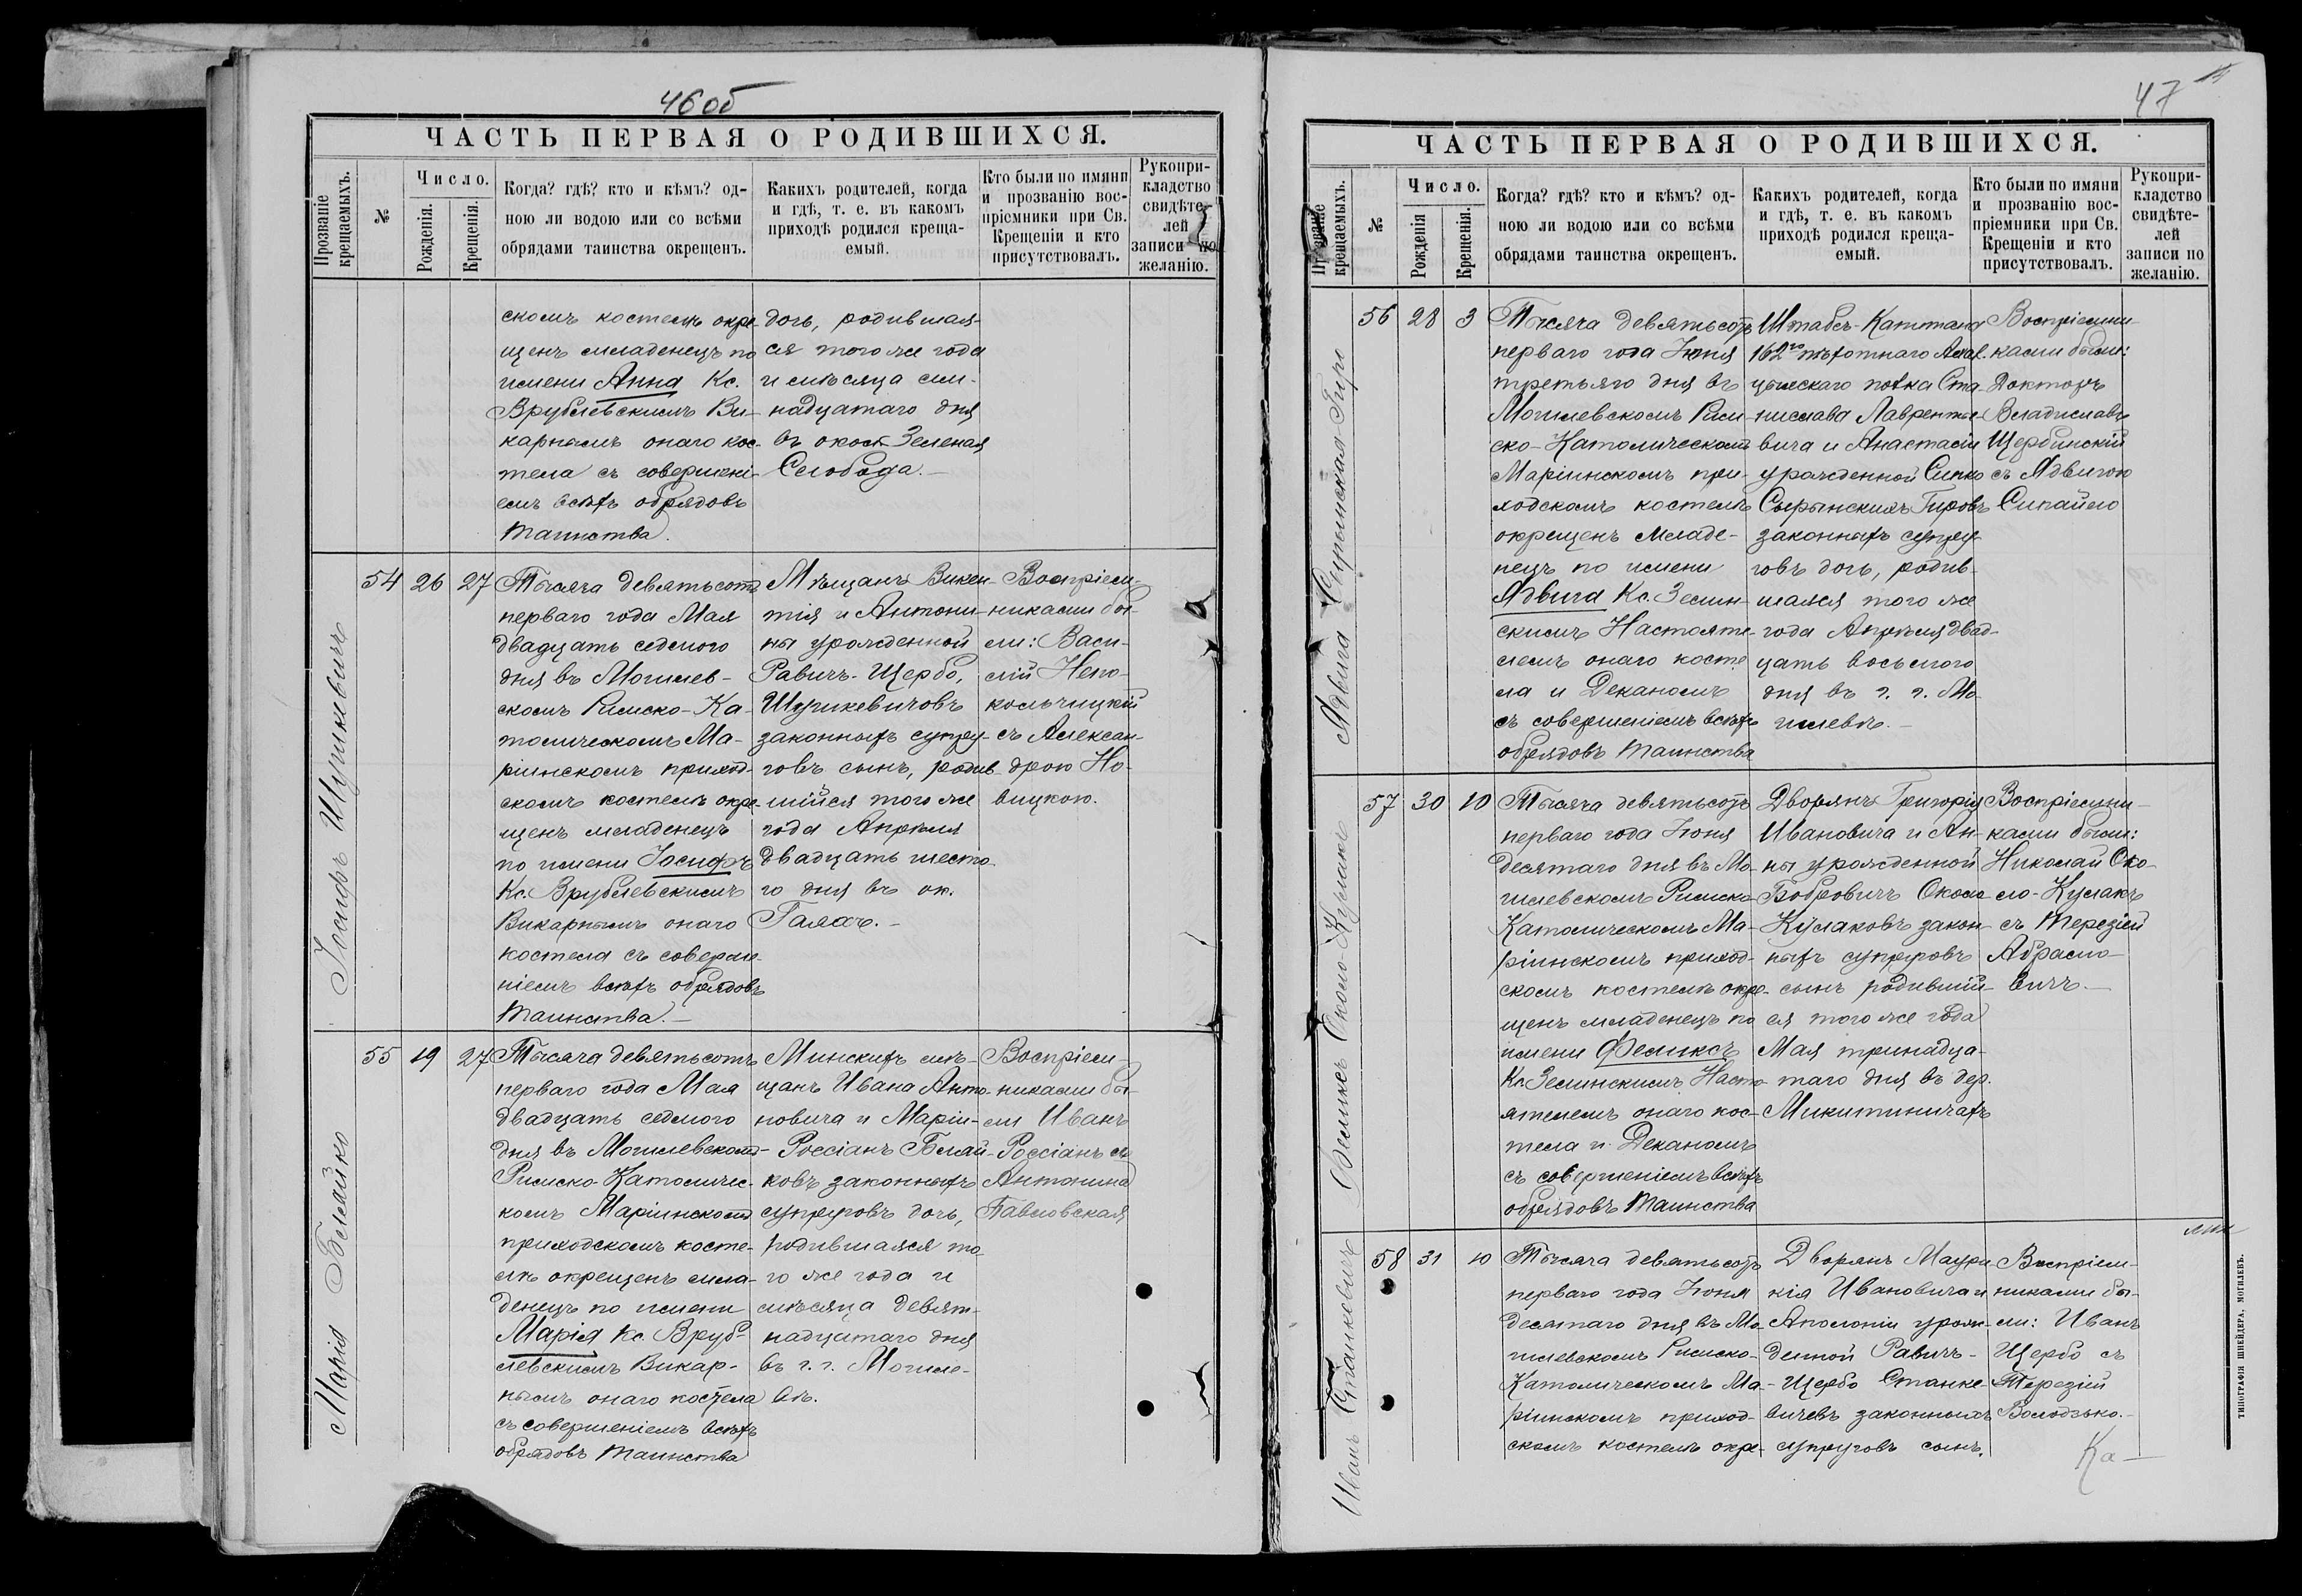 46 об
ЧАСТЬ ПЕРВАЯ О РОДИВШИХСЯ.
Прозваніе крещаемыхъ.
№
Число.
Рожденія.
Крещенія.
Когда? гдѣ? кто и кѣмъ? од-
ною ли водою или со всѣми
обрядами таинства окрещенъ.
Какихъ родителей, когда
и гдѣ, т. е. въ какомъ
приходѣ родился креща-
емый.
Кто были по имяни
и прозванію вос-
пріемники при Св.
Крещеніи и кто
присутствовалъ.
Рукопри-
кладство
свидѣте-
лей
записи по
желанію.
скомъ костелѣ окре-
щенъ младенецъ по
имени Анна Кс.
Врублевскимъ Ви-
карнымъ онаго кос-
тела съ совершені-
емъ всѣхъ обрядовъ
таинства.
дочь, родившая-
ся того же года
и мѣсяца сем-
надцатаго дня
въ окол. Зеленая
Слобода.
Іосифъ Шушкевичъ
54 26 27
Тысяча девятьсотъ
перваго года Мая
двадцать седмого
дня въ Могилев-
скомъ Римско-Ка-
толическомъ Ма-
ріинскомъ приход-
скомъ костелѣ окре-
щенъ младенецъ
по имени Іосифъ
Кс. Врублевскимъ
Викарнымъ онаго
костела съ соверше-
ніемъ всѣхъ обрядовъ
таинства.
Мѣщанъ Викен-
тія и Антони-
ны урожденной
Равичъ-Щербо,
Шушкевичовъ
законныхъ супру-
говъ сынъ, родив-
шійся того же
года Апрѣля
двадцать шесто-
го дня въ ок.
Галяхъ.
Воспріем-
никами бы-
ли: Васи-
лій Непо-
кольчицкій
съ Алексан-
дрою Но-
вицкою.
Марія Блайко
55 19 27
Тысяча девятьсотъ
перваго года Мая
двадцать седмого
дня въ Могилевскомъ
Римско-Католичес-
комъ Маріинскомъ
приходскомъ косте-
лѣ окрещенъ мла-
денецъ по имени
Марія Кс. Вруб-
левскимъ Викар-
нымъ онаго костела
съ совершеніемъ всѣхъ
обрядовъ таинства
Минскихъ мѣ-
щанъ Ивана Анто-
новича и Маріи-
Россіанъ Блай-
ковъ законныхъ
супруговъ дочь,
родившаяся то-
го же года и
мѣсяца девят-
надцатаго дня
въ г. г. Могиле-
вѣ.
Воспріем-
никами бы-
ли Иванъ
Россіанъ съ
Антонина
Павловская
47
ЧАСТЬ ПЕРВАЯ О РОДИВШИХСЯ.
Прозваніе крещаемыхъ.
№
Число.
Рожденія
Крещенія.
Когда? гдѣ? кто и кѣмъ? од-
ною ли водою или со всѣми
обрядами таинства окрещенъ.
Какихъ родителей, когда
и гдѣ, т. е. въ какомъ
приходѣ родился креща-
емый.
Кто были по имяни
и прозванію вос-
пріемники при Св.
Крещеніи и кто
присутствовалъ.
Рукопри-
кладство
свидѣте-
лей
записи по
желанію.
Ядвига Сырынская-Гиро
56 28 3
Тысяча девятьсотъ
перваго года Іюня
третьяго дня въ
Могилевскомъ Рим-
ско-Католическомъ
Маріинскомъ при-
ходскомъ костелѣ
окрещенъ младе-
нецъ по имени
Ядвига Кс. Земин-
скимъ Настояте-
лемъ онаго косте-
ла и Деканомъ
съ совершеніемъ всѣхъ
обрядовъ таинства
Штабсъ-Капитана
162го пѣхотнаго Ахал-
цыхскаго полка Ста-
нислава Лавренть-
вича и Анастасіи
урожденной Сипко
Сырынскихъ Гировъ
законныхъ супру-
говъ дочь, родив-
шаяся того же
года Апрѣля двад-
цать восьмого
дня въ г. г. Мо-
гилевѣ.
Воспріемни-
ками были:
Докторъ
Владиславъ
Щербинскій
съ Ядвигою
Сипайло
Феликсъ Около-Кулакъ
57 30 10
Тысяча девятьсотъ
перваго года Іюня
десятаго дня въ Мо-
гилевскомъ Римско-
Католическомъ Ма-
ріинскомъ приход-
скомъ костелѣ окре-
щенъ младенецъ по
имени Феликсъ
Кс. Земинскимъ Насто-
ятелемъ онаго кос-
тела и Деканомъ
съ совершеніемъ всѣхъ
обрядовъ таинства
Дворянъ Григорія
Ивановича и Ан-
ны урожденной
Бобровичъ Около
Кулаковъ закон-
ныхъ супруговъ
сынъ родившій-
ся того же года
Мая тринадца-
таго дня въ дер.
Микитиничахъ
Воспріемни-
ками были:
Николай Око-
ло-Кулакъ
съ Терезіей
Абрамо-
вичъ.
Иванъ Станкевичъ
58 31 10
Тысяча девятьсотъ
перваго года Іюня
десятаго дня въ Мо-
гилевскомъ Римско-
Католическомъ Ма-
ріинскомъ приход-
скомъ костелѣ окре-
Дворянъ Маури-
кія Ивановича и
Аполоніи урож-
денной Равичъ-
Щербо Станке-
вичевъ законныхъ
супруговъ сынъ,
Воспріем-
никами бы-
ли: Иванъ
Щербо съ
Терезіей
Володзько.
Ка-
ТИПОГРАФІЯ ШНЕЙДЕРА, МОГИЛЕВЪ.